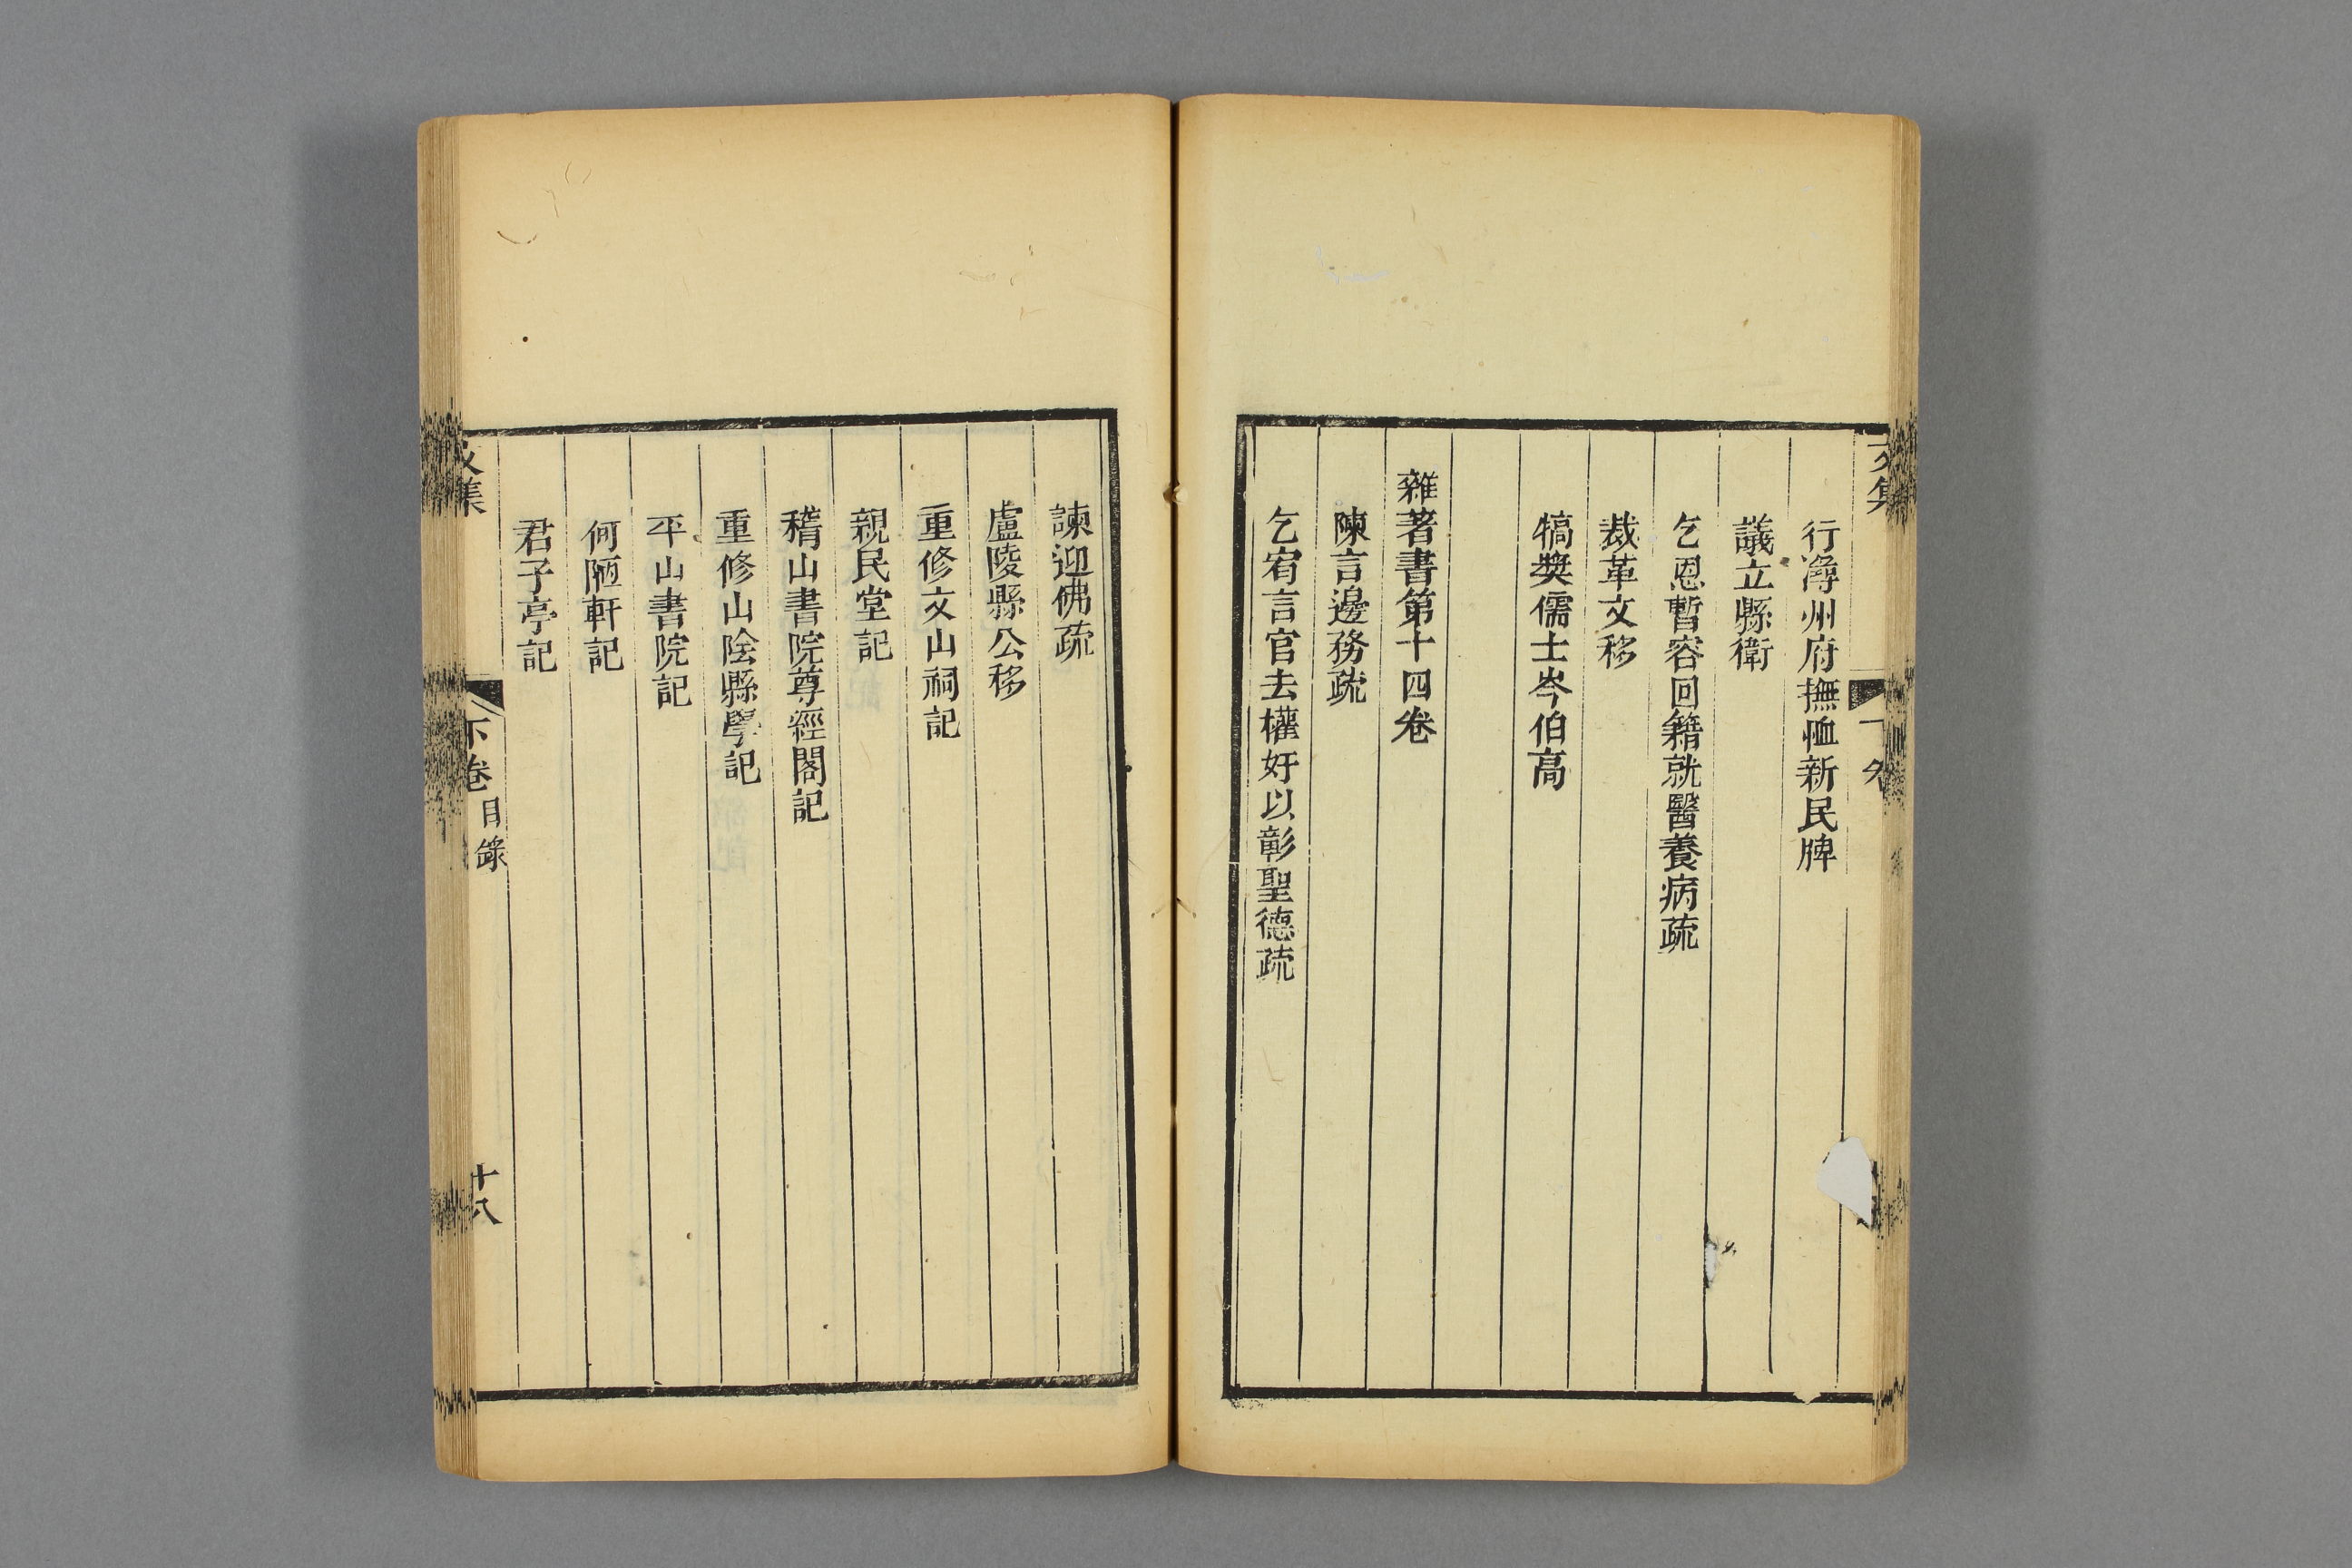 行潯州府撫恤新民牌
議立縣衛
乞恩暫容回籍就醫養病疏
裁革文移
犒獎儒士岑伯高
雜著書第十四卷
陳言邊務疏
乞宥言官去權奸以彰聖德疏
諫迎佛疏
廬陵縣公移
重修文山祠記
親民堂記
稽山書院尊經閣記
重修山陰縣學記
平山書院記
何陋軒記
君子亭記
文集
下卷
目錄
十八